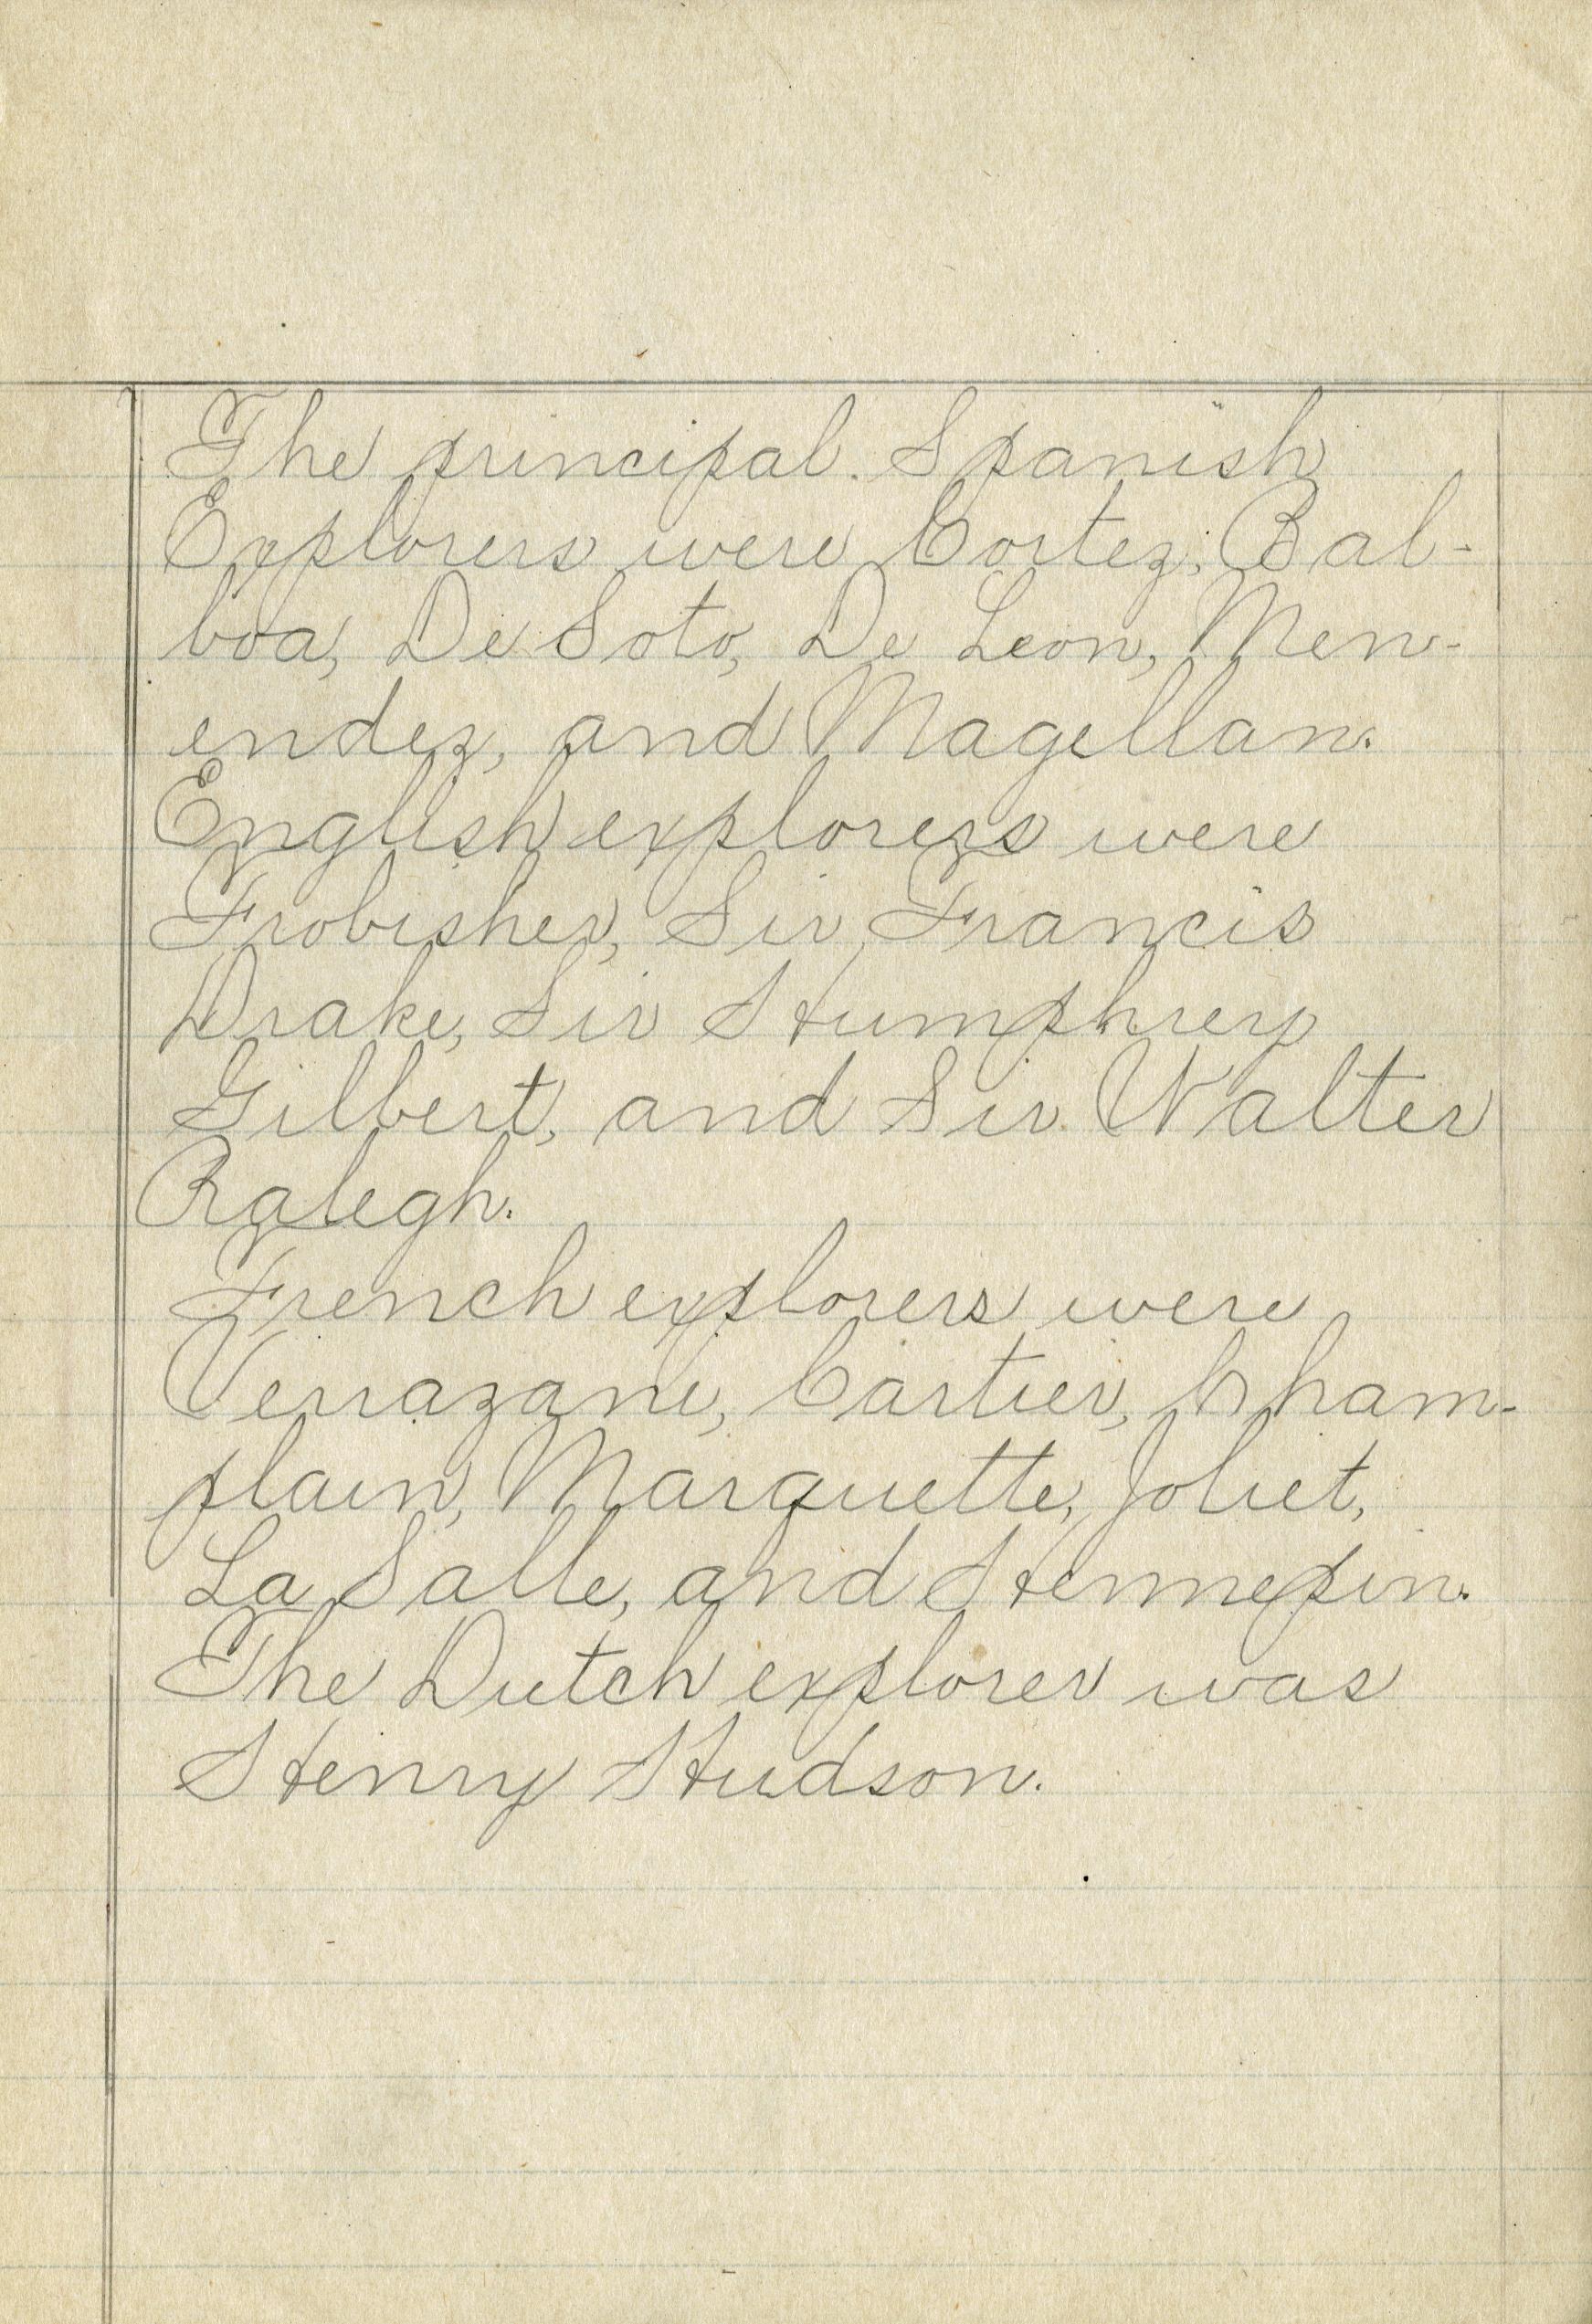 The principal Spanish
Explorers were Cortez, Bal-
boa, De Soto, De Leon, Men-
endez, and Magellan.
English explorers were
Frobisher, Sir Francis
Drake, Sir Humphrey
Gilbert, and Sir Walter
Ralegh.
French explorers were
Verrazane, Cartier, Cham-
plain, Marquette, Joliet,
La Salle, and Hennepin.
The Dutch explorer was
Henry Hudson.